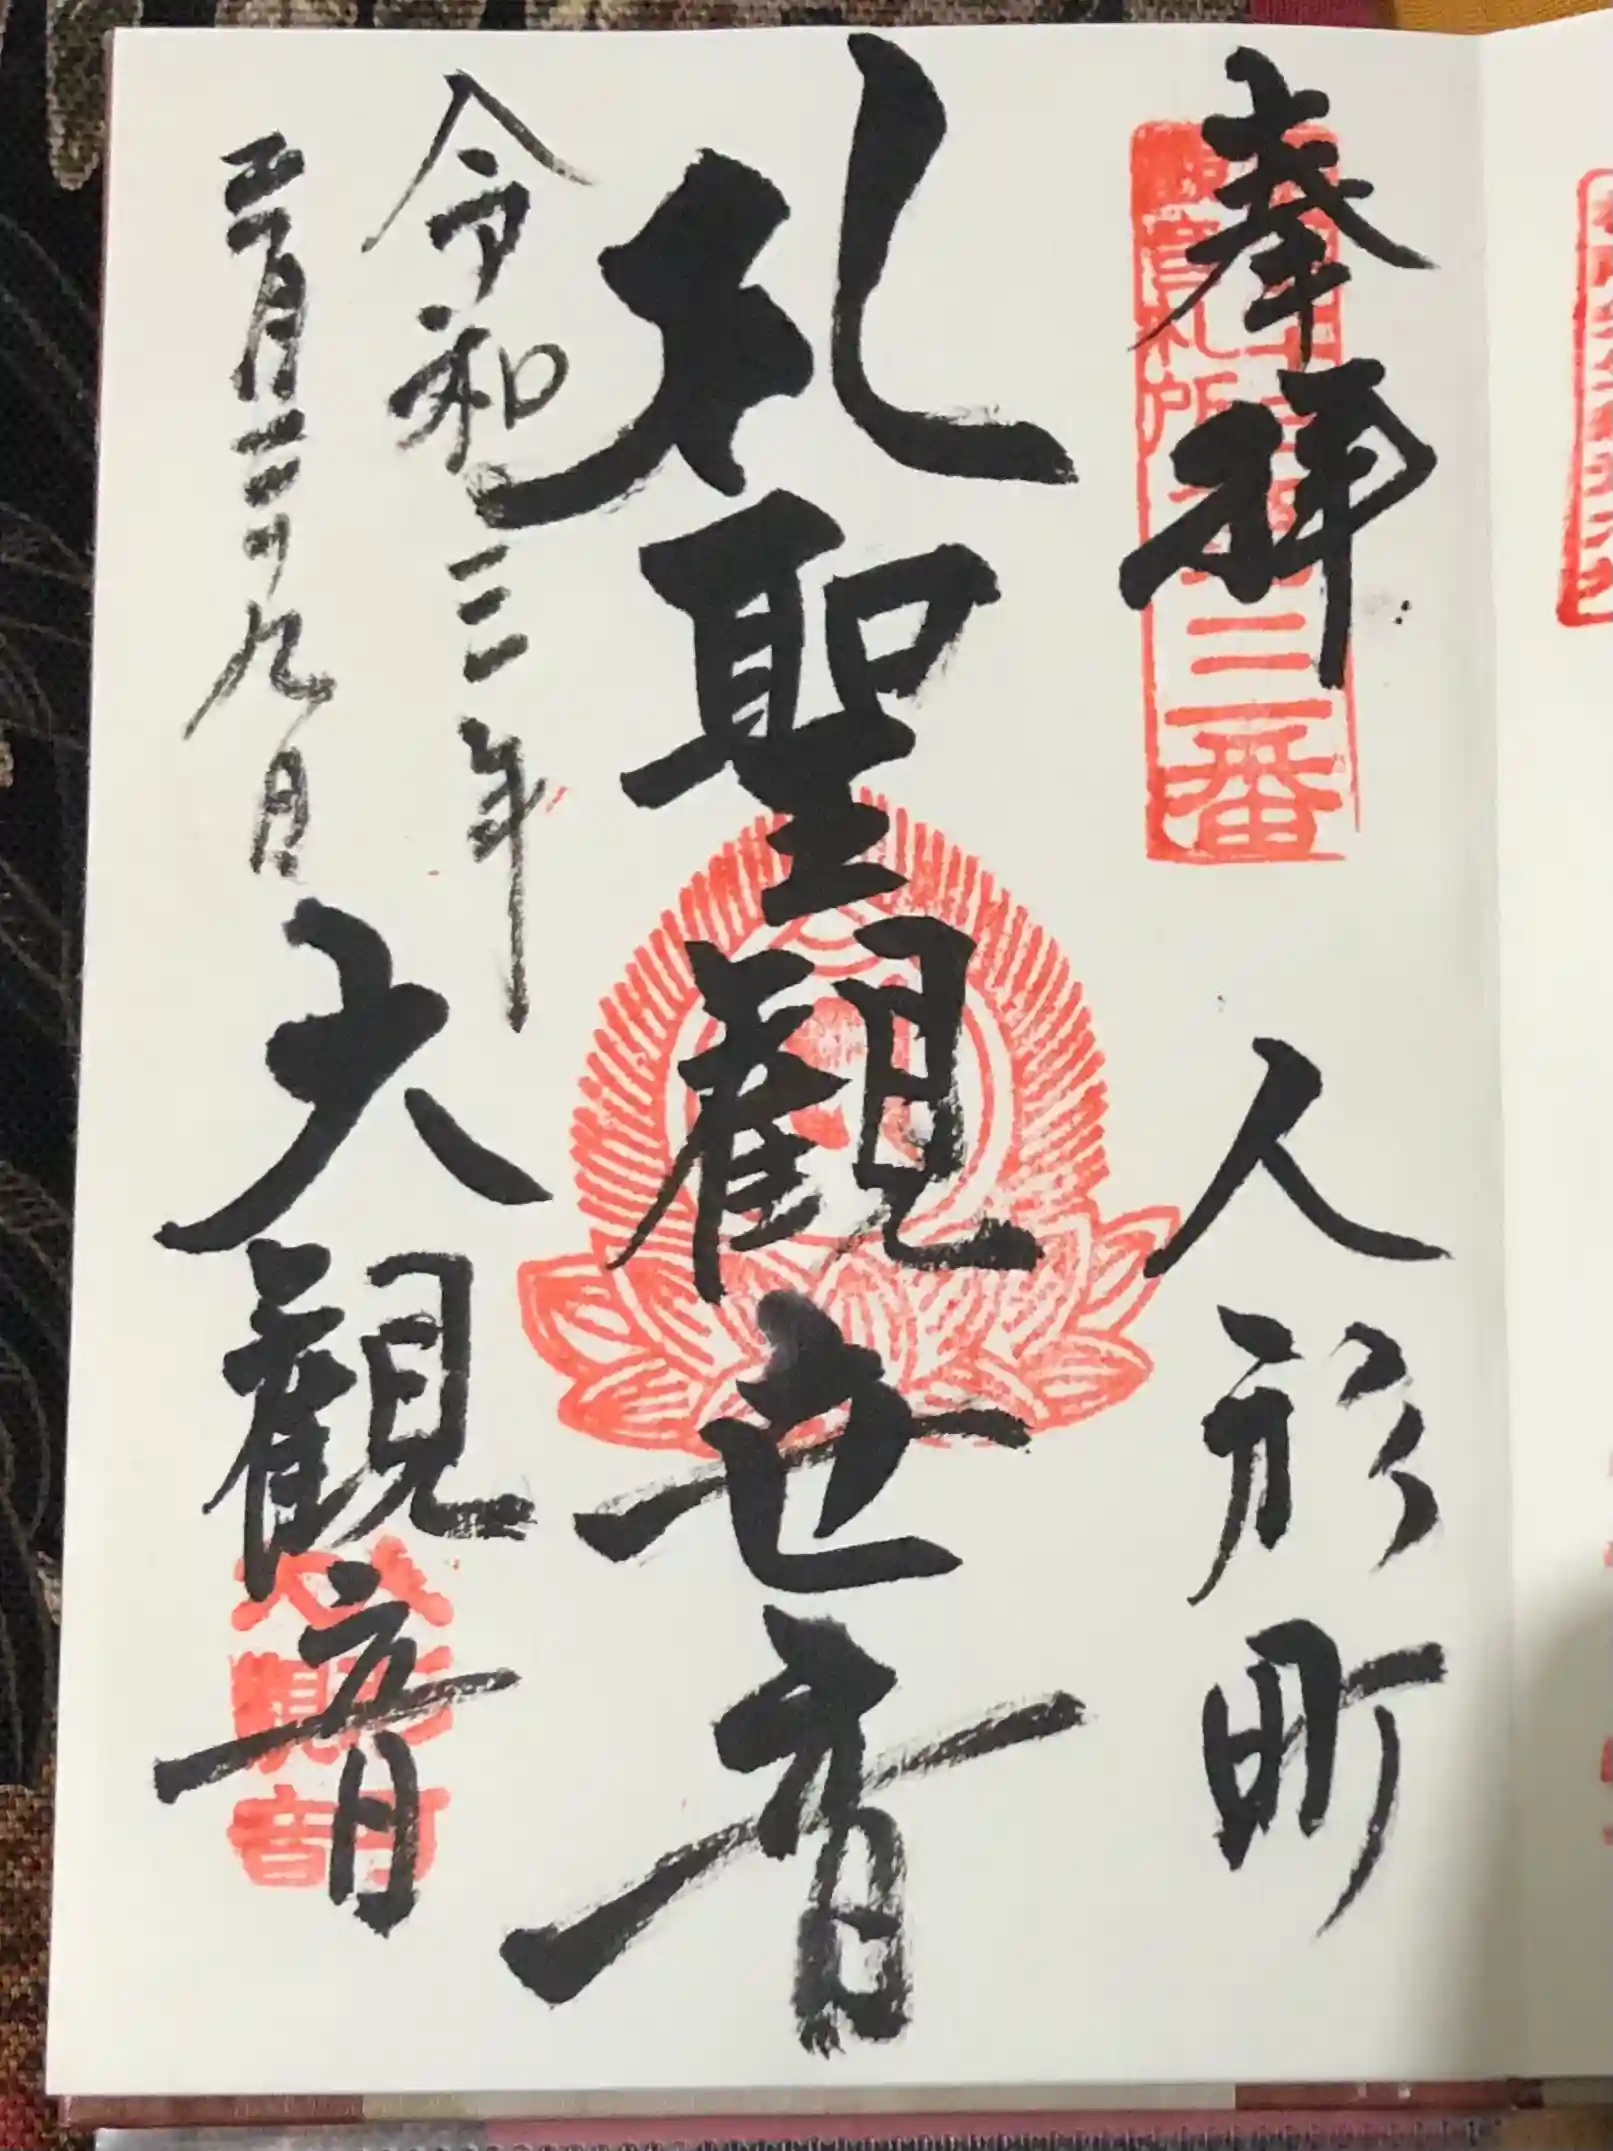 奉拝 人形町
観音札所
三番
礼聖観世音
令和三年
五月二十九日
大観音